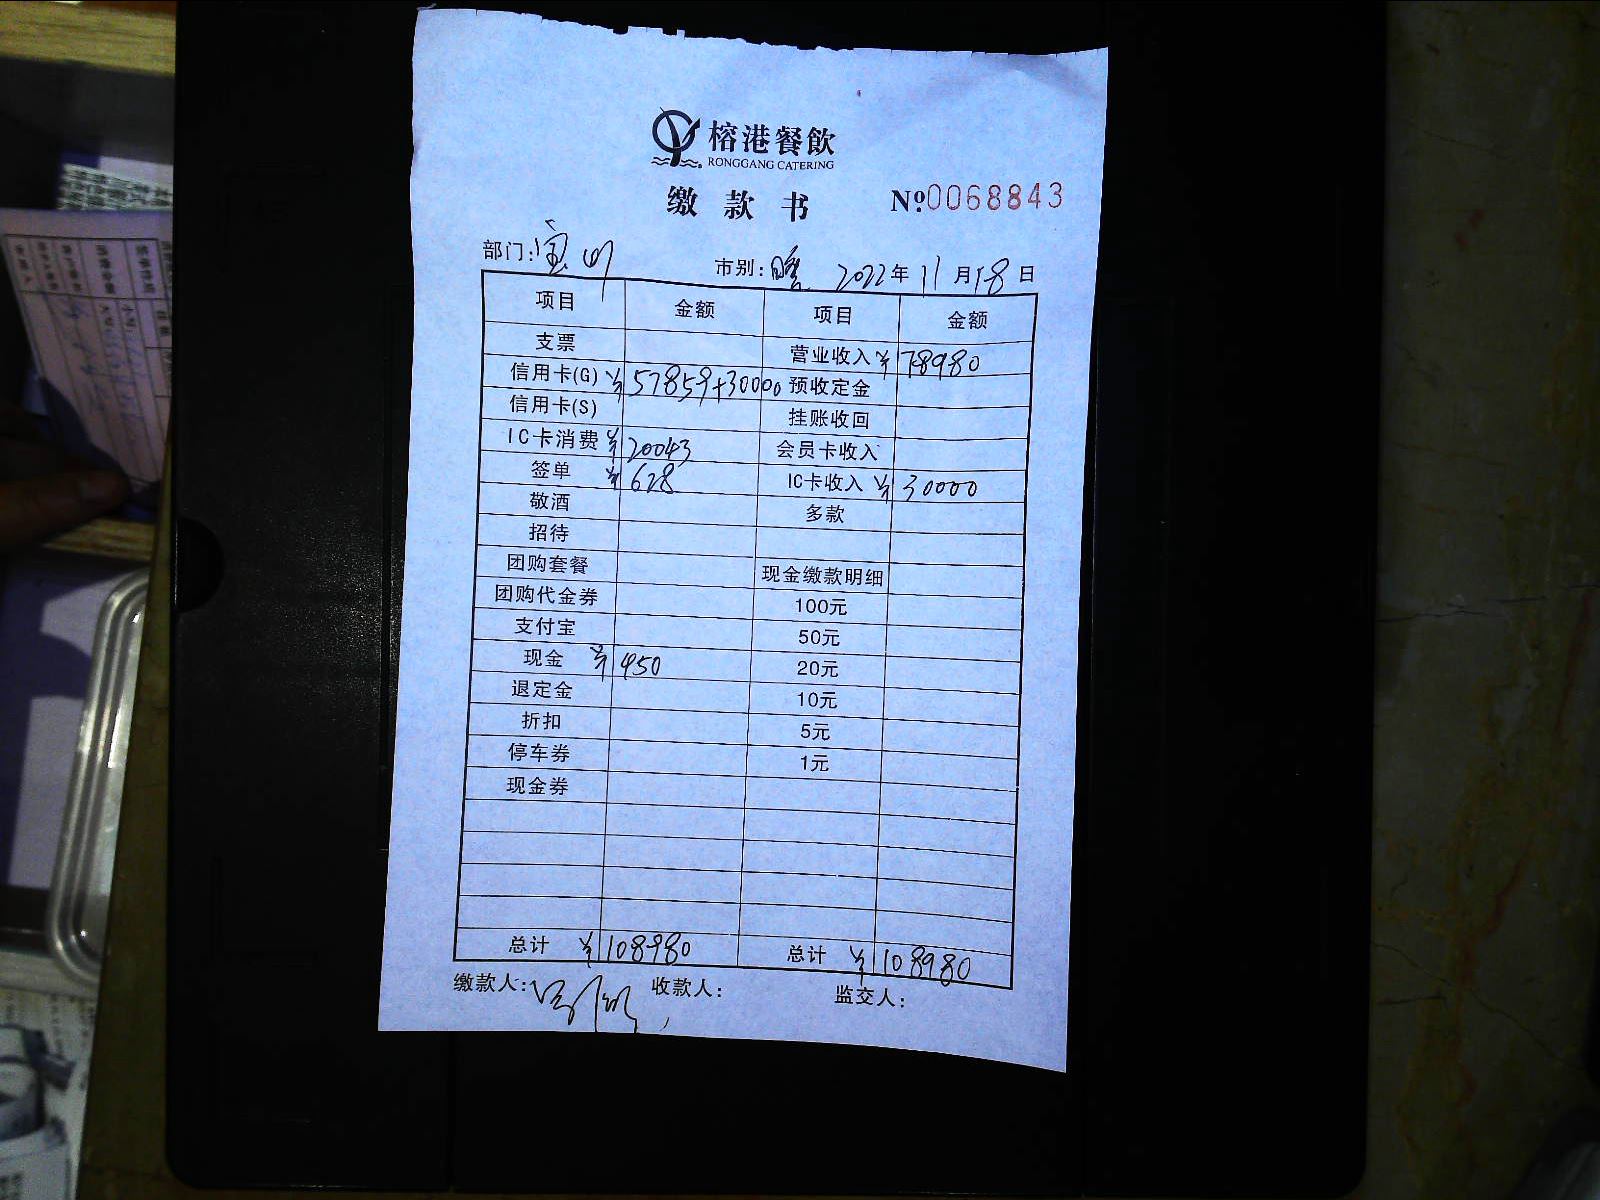 榕港餐飲
RONGGANG CATERING
缴款书 №0068843
部门: 市别:晚 2022年11月18日
项目 金额 项目 金额
支票 营业收入 ¥78980
信用卡(G) ¥57859+30000 预收定金
信用卡(S) 挂账收回
IC卡消费 ¥20043 会员卡收入
签单 ¥628 IC卡收入 ¥30000
敬酒 多款
招待
团购套餐 现金缴款明细
团购代金券 100元
支付宝 50元
现金 ¥450 20元
退定金 10元
折扣 5元
停车券 1元
现金券
总计 ¥108980 总计 ¥108980
缴款人: 收款人: 监交人: